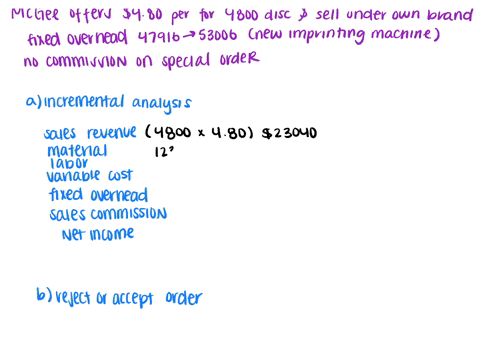 McGee offers $4.80 per for 4800 disc & sell under own brand
fixed overhead 47916 → 53006 (new imprinting machine)
no commission on special order
a) incremental analysis
sales revenue (4800 x 4.80) $23040
material 12
labor
variable cost
fixed overhead
sales commission
net income
b) reject or accept order